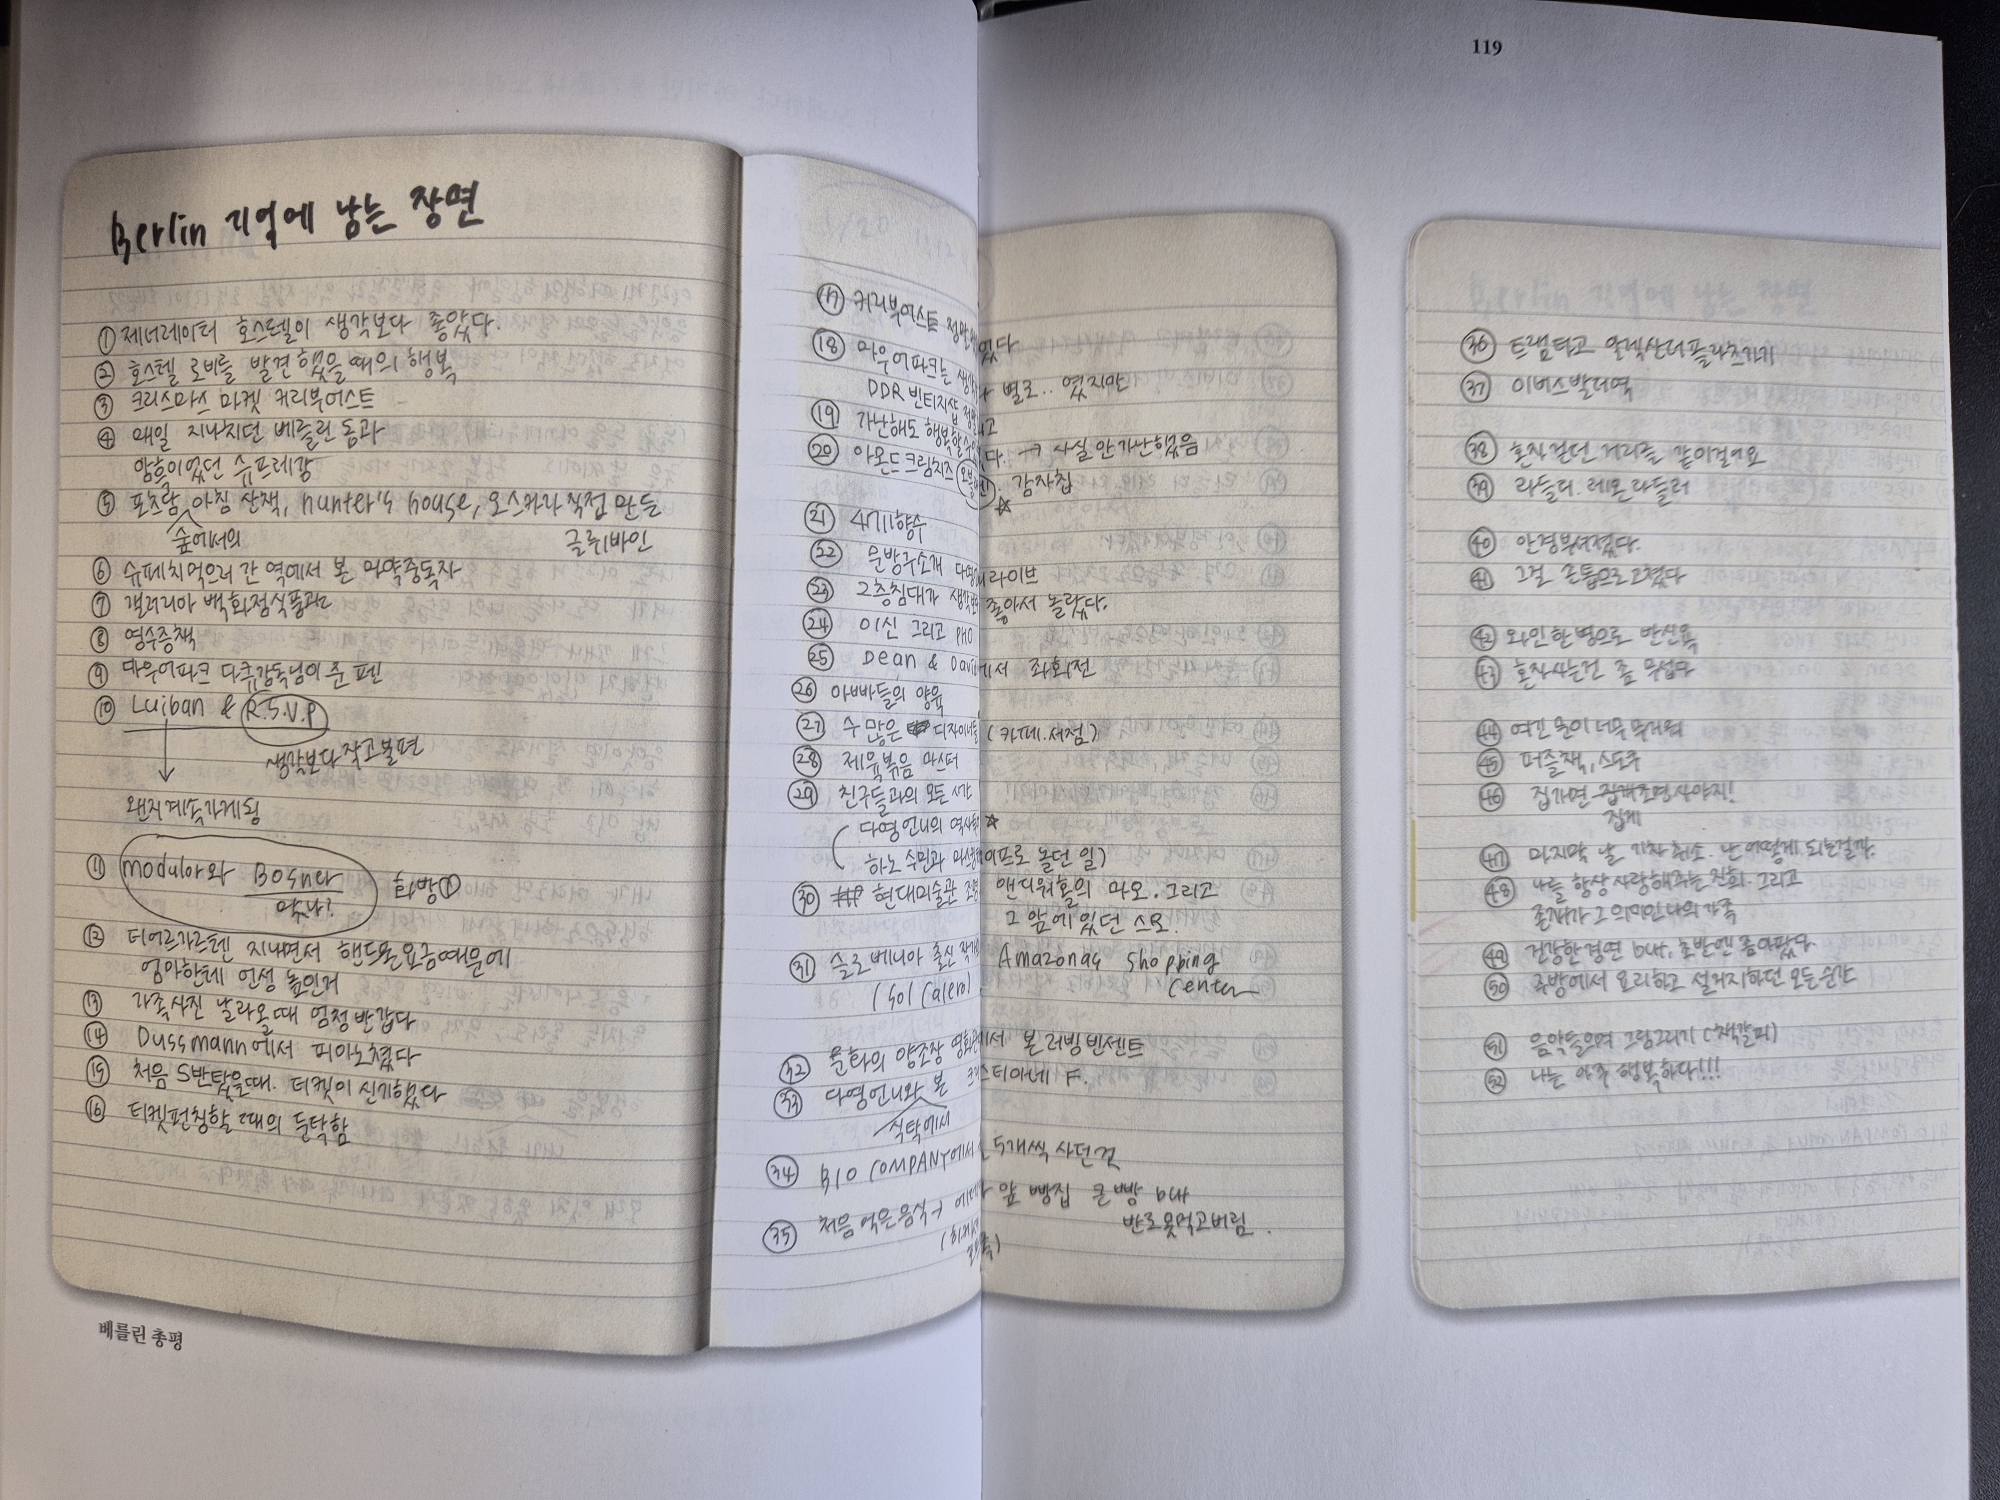 119
Berlin 기억에 남는 장면
① 제너레이터 호스텔이 생각보다 좋았다.
② 호스텔 로비를 발견했을때의 행복
③ 크리스마스 마켓 커리부어스트
④ 매일 지나치던 베를린 돔과
암흑이었던 슈프레강
⑤ 포츠담 아침 산책, hunter's house, 오스카가 직접 만든
숲에서의 글뤼바인
⑥ 슈페치먹으러 간 역에서 본 마약중독자
⑦ 갤러리아 백화점식품관
⑧ 영수증책
⑨ 마우어파크 다큐감독님이 준 펜
⑩ Luiban & R.S.V.P
생각보다 작고 불편
왠지계속가게됨
⑪ modulor와 Bosner
였나? 화방
⑫ 티어르가르텐 지나면서 핸드폰요금때문에
엄마한테 언성 높인거
⑬ 가족사진 날라올때 엄청반갑다
⑭ Dussmann에서 피아노쳤다
⑮ 처음 S반탔을때. 티켓이 신기했다
⑯ 티켓펀칭할 때의 둔탁함
베를린 총평
⑰ 커리부어스트
⑱ 마우어파크는 별로.. 였지만
DDR 빈티지샵
⑲ 가난해도 행복할수 → 사실 안가난했음
⑳ 아몬드크림치즈 감자칩 ☆
㉑ 4711향수
㉒ 문방구소개 라이브
㉓ 2층침대가 좋아서 놀랐다.
㉔ 이신 그리고 PHO
㉕ Dean & David에서 좌회전
㉖ 아빠들의 양육
㉗ 수 많은 디자이너들 (카페.서점)
㉘ 제육볶음 마스터
㉙ 친구들과의 모든 시간
다영언니의 ☆
하노 수민과 놀던 일)
㉚ 현대미술관 앤디워홀의 마오. 그리고
그 앞에 있던 스모.
㉛ 슬로베니아 출신 작가 Amazonas shopping
(Sol Calero) center
㉜ 문화의 양조장 영화관에서 본 러빙빈센트
㉝ 다영언니와 본 크리스티아네 F.
식탁에서
㉞ BIO COMPANY에서 5개씩 사던것
㉟ 처음 먹은음식→ 앞 빵집 큰빵 but
반도못먹고버림.
㊱ 트램타고 알렉산더플라츠가기
㊲ 이버스발더역
㊳ 혼자걷던 거리를 같이걸어요
㊴ 라들러. 레몬라들러
㊵ 안경부셔졌다.
㊶ 그걸 손톱으로고쳤다
㊷ 와인한병으로 반신욕
㊸ 혼자사는건 좀 무섭다
㊹ 여긴 문이너무무거워
㊺ 퍼즐책, 스도쿠
㊻ 집가면 집게조명사야지!
집게
㊼ 마지막 날 기차취소. 난어떻게 되는걸까.
㊽ 나를 항상사랑해주는 진희. 그리고
존재가 그 의미인나의가족
㊾ 건강한걸연 but, 초반엔좀아팠다
㊿ 주방에서 요리하고 설거지하던 모든순간
51 음악들으며 그림그리기 (책갈피)
52 나는 아주 행복하다!!!